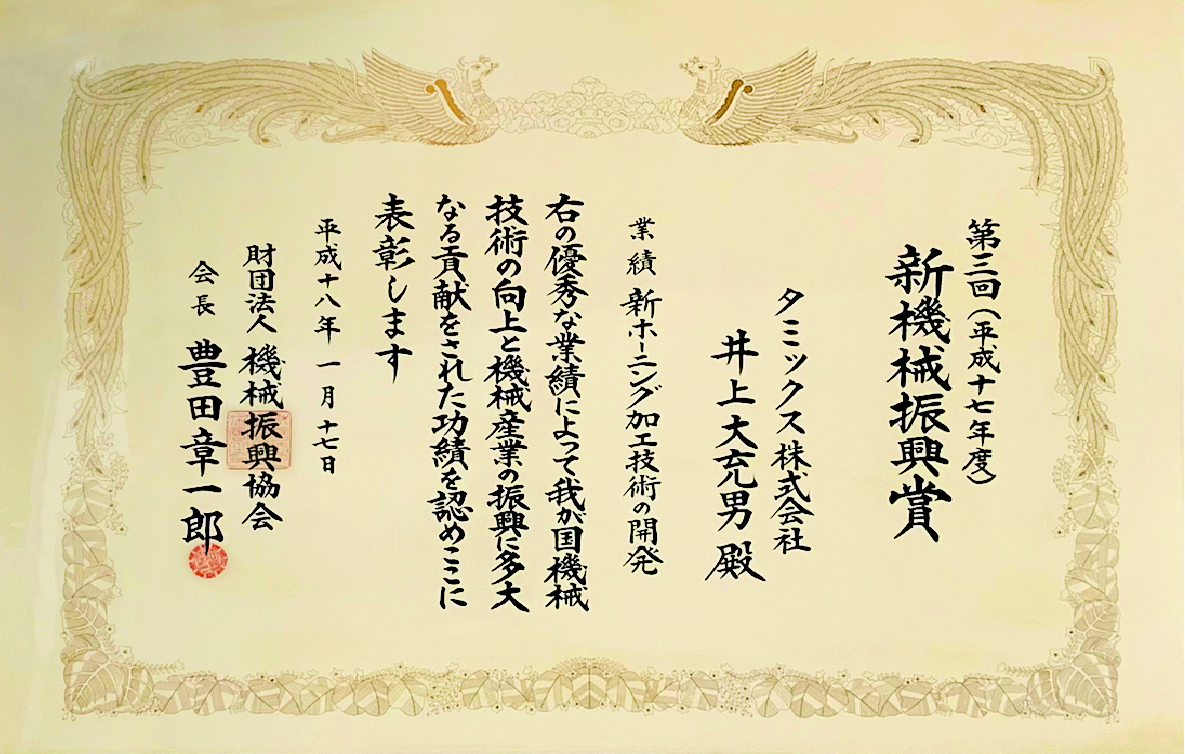 第三回(平成十七年度)
新機械振興賞
タミックス株式会社
井上大充男殿
業績 新ホーニング加工技術の開発
右の優秀な業績によって我が国機械
技術の向上と機械産業の振興に多大
なる貢献をされた功績を認めここに
表彰します
平成十八年一月十七日
財団法人 機械振興協会
会長 豊田章一郎